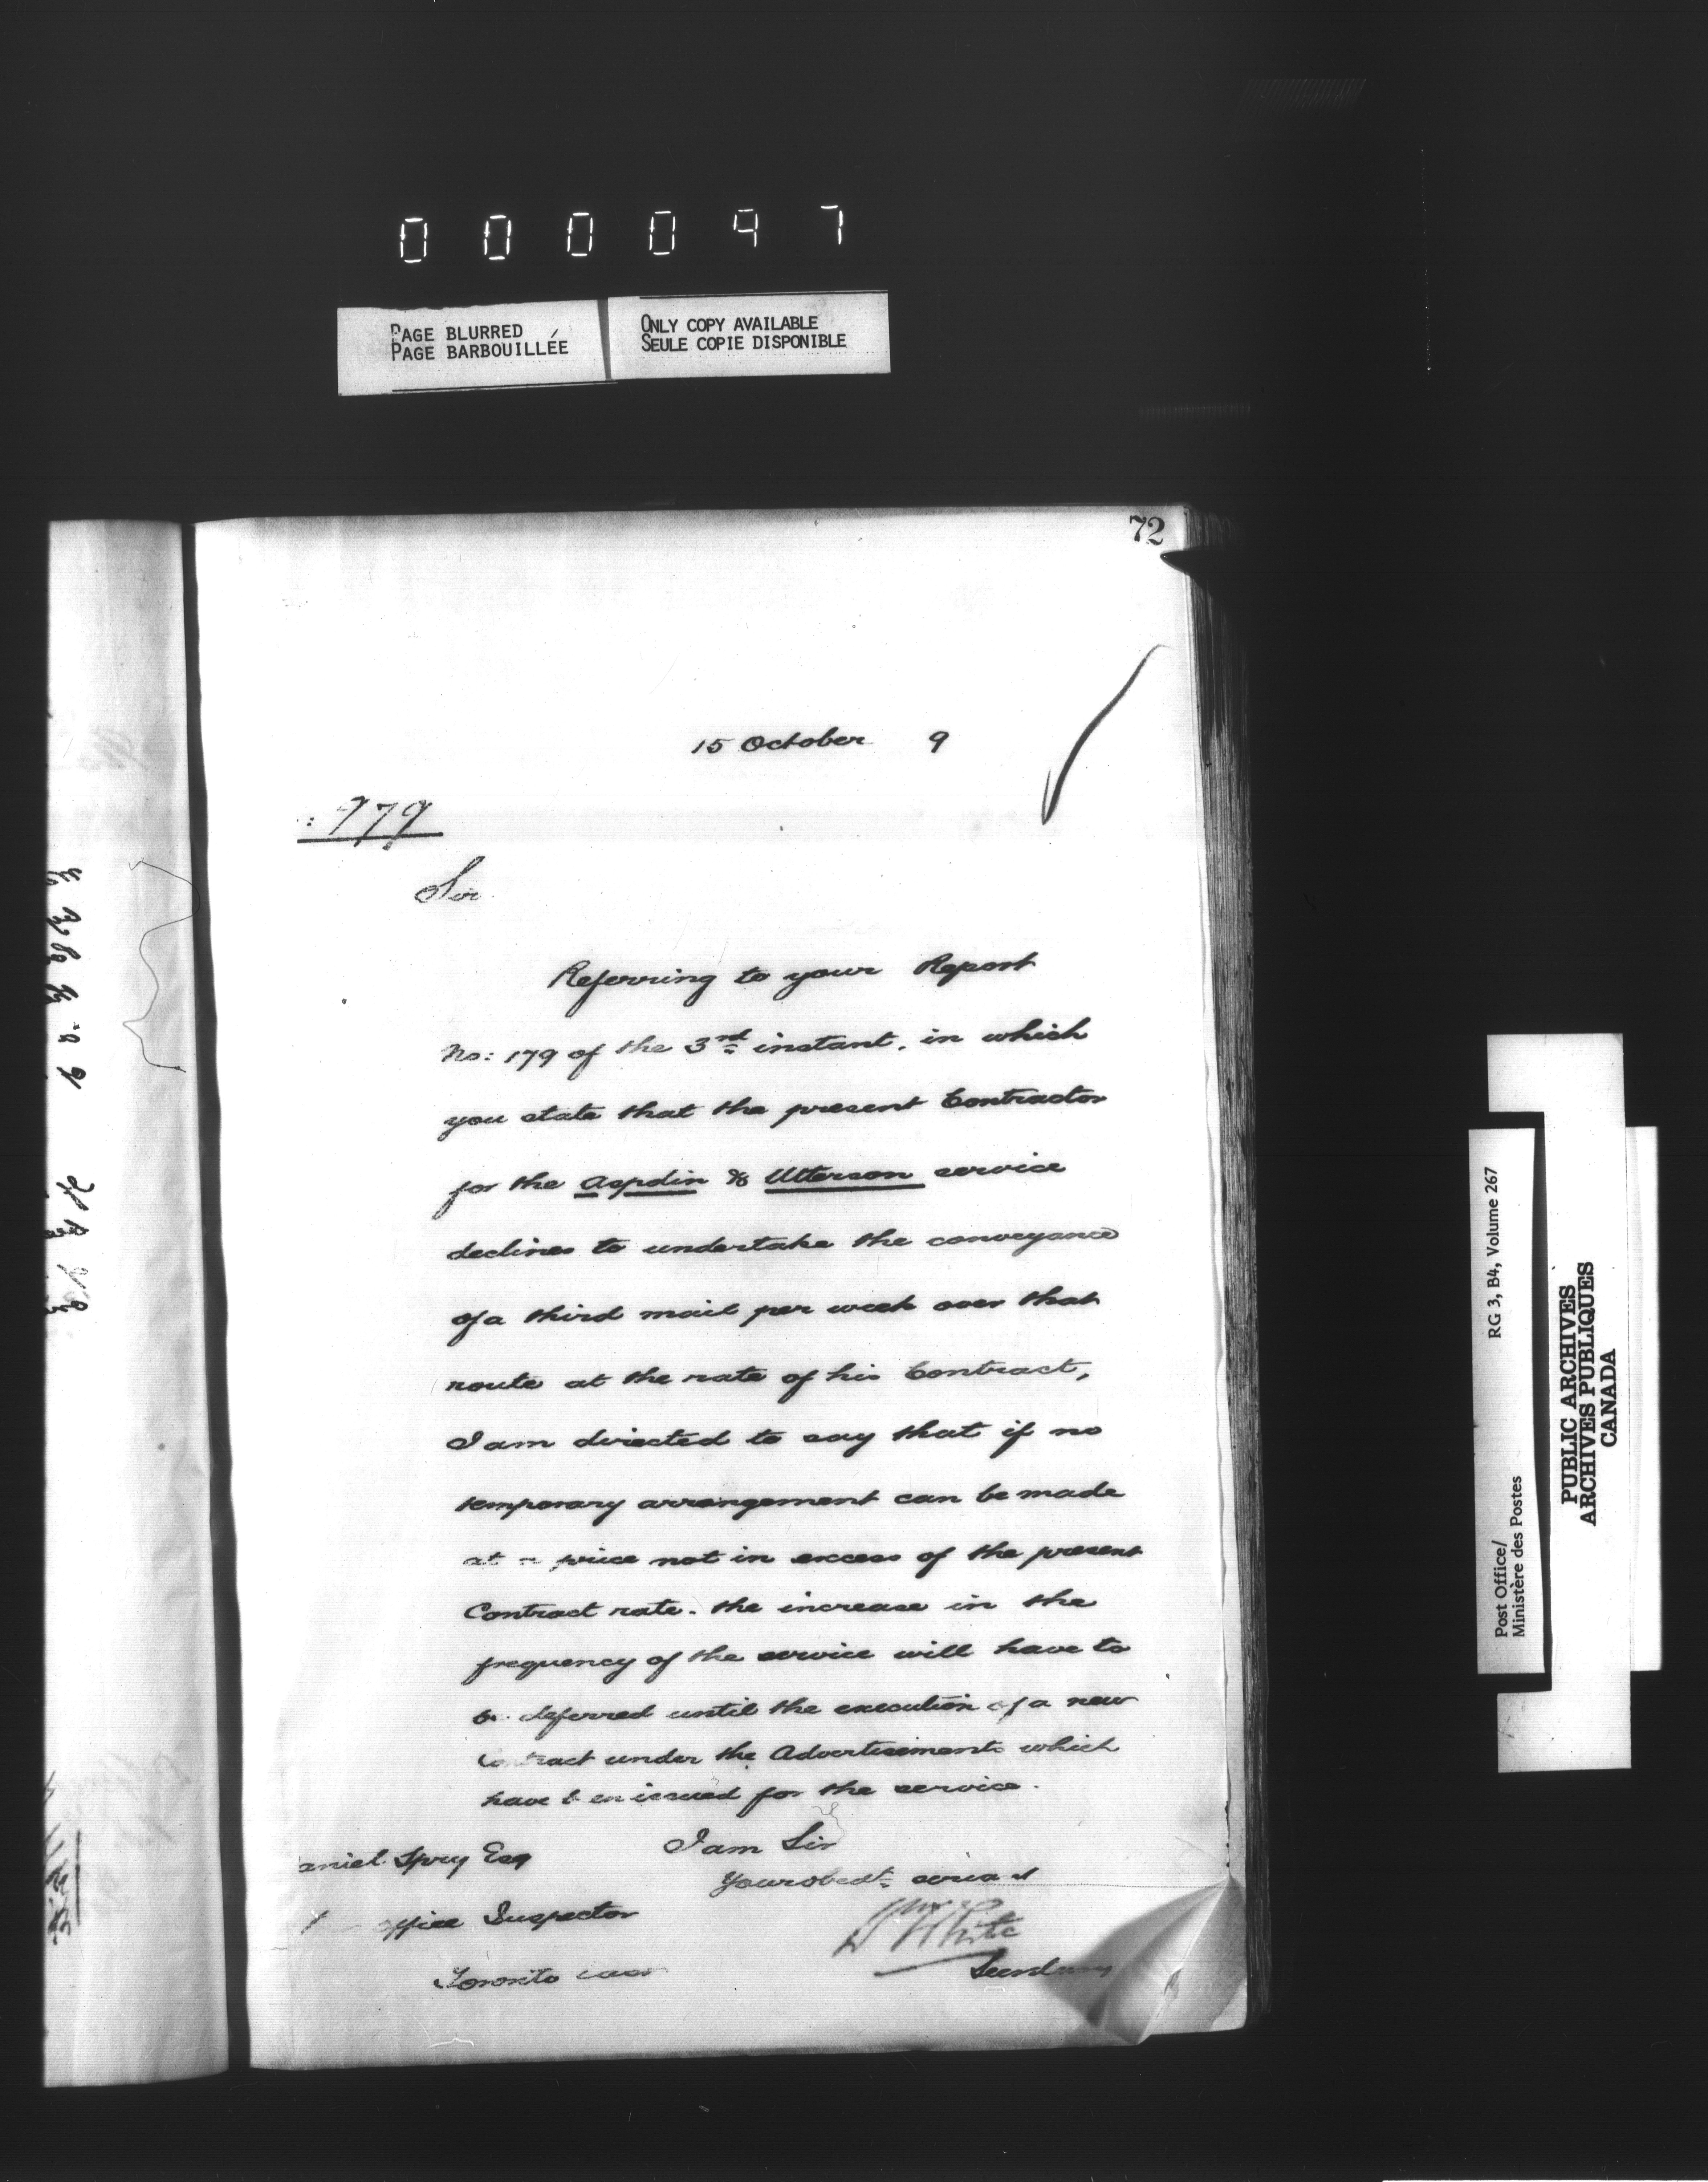 000097
PAGE BLURRED
PAGE BARBOUILLÉE
ONLY COPY AVAILABLE
SEULE COPIE DISPONIBLE
72
15 October 9
: 779
Sir
Referring to your Report
No: 179 of the 3rd instant, in which
you state that the present Contractor
for the Aspdin & Utterson service
declines to undertake the conveyance
of a third mail per week over that
route at the rate of his Contract,
I am directed to say that if no
temporary arrangement can be made
at a price not in excess of the present
Contract rate. the increase in the
frequency of the service will have to
be deferred until the execution of a new
Contract under the Advertisements which
have been issued for the service.
I am Sir
Your obedt servant
White
Secretary
aniel Spry Esq
office Inspector
Toronto
RG 3, B4, Volume 267
Post Office/
Ministère des Postes
PUBLIC ARCHIVES
ARCHIVES PUBLIQUES
CANADA